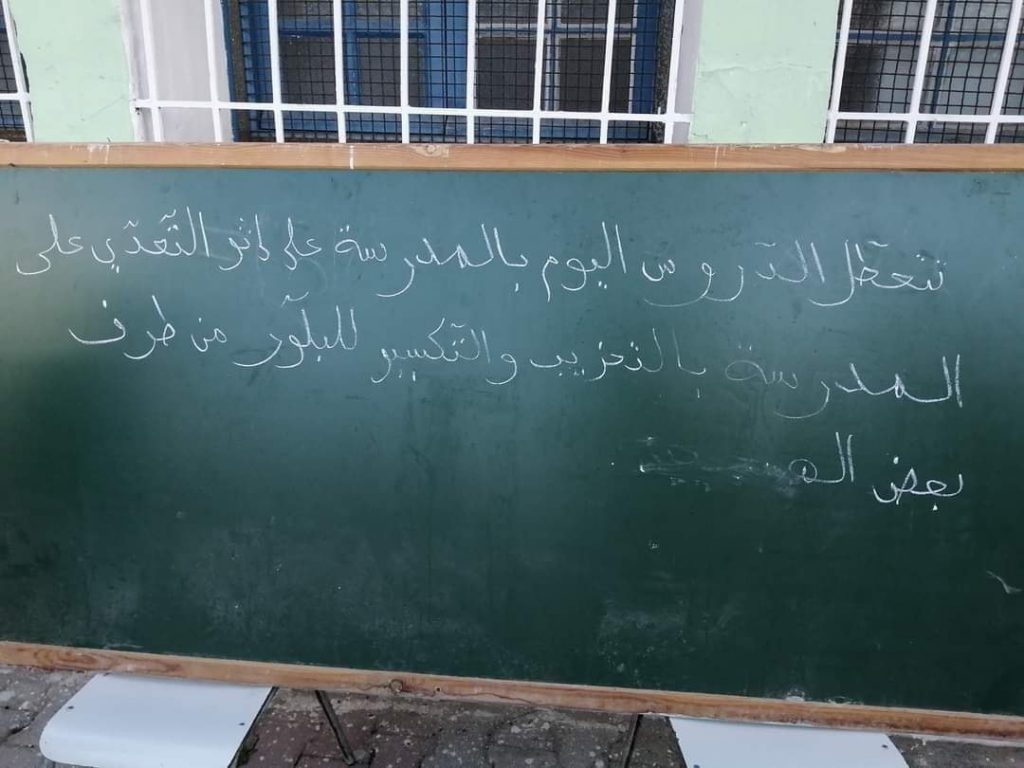 تتعطّل الدّروس اليوم بالمدرسة على إثر التّعدّي على
المدرسة بالتخريب والتّكسير للبلّور من طرف
بعض